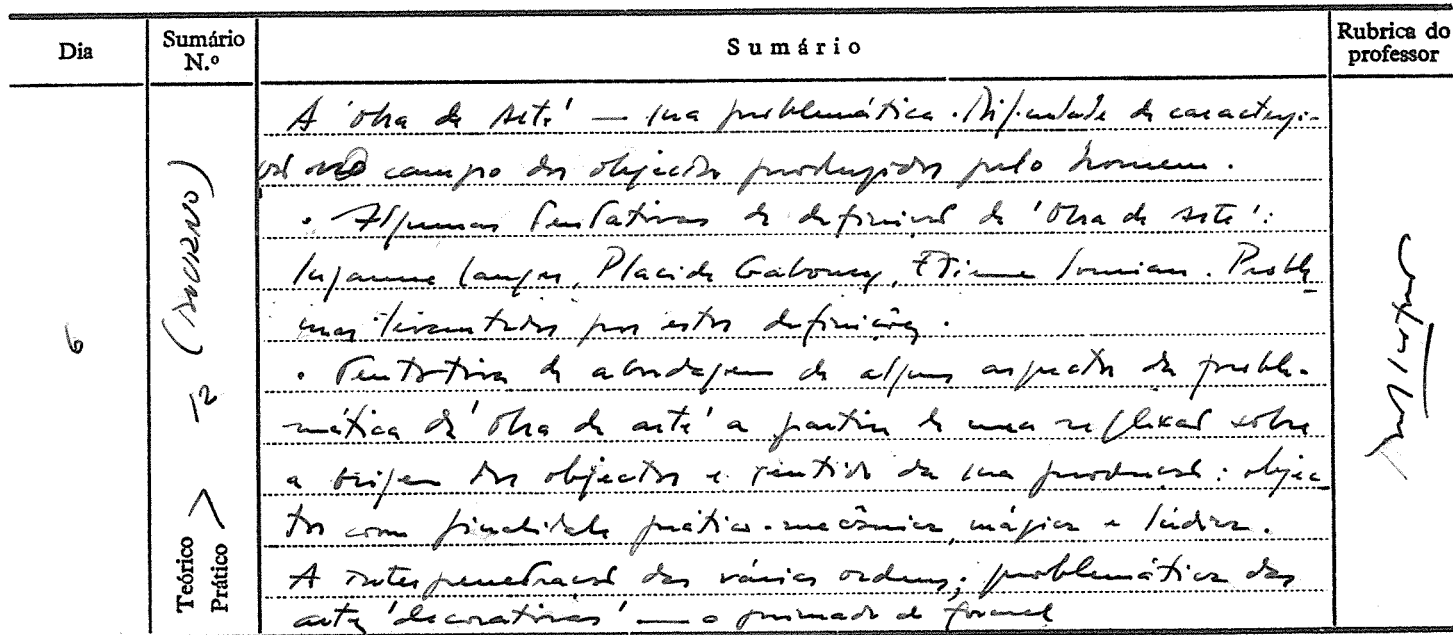 Dia
Sumário N.º
Sumário
Rubrica do professor
6
12 (DIURNO)
Teórico
Prático
A 'obra de arte' — sua problemática. Dificuldade de caracterizá-
la no campo dos objectos produzidos pelo homem.
. Algumas tentativas de definição de 'obra de arte':
Susanne Langer, Placide Gaboury, Etienne Souriau. Proble-
mas levantados por estas definições.
. Tentativa de abordagem de alguns aspectos da proble-
mática da 'obra de arte' a partir de uma reflexão sobre
a origem dos objectos e sentido da sua produção: objec-
tos com finalidade prático-mecânica, mágica e lúdica.
A interpenetração das várias ordens; problemática das
artes 'decorativas' — o primado do formal